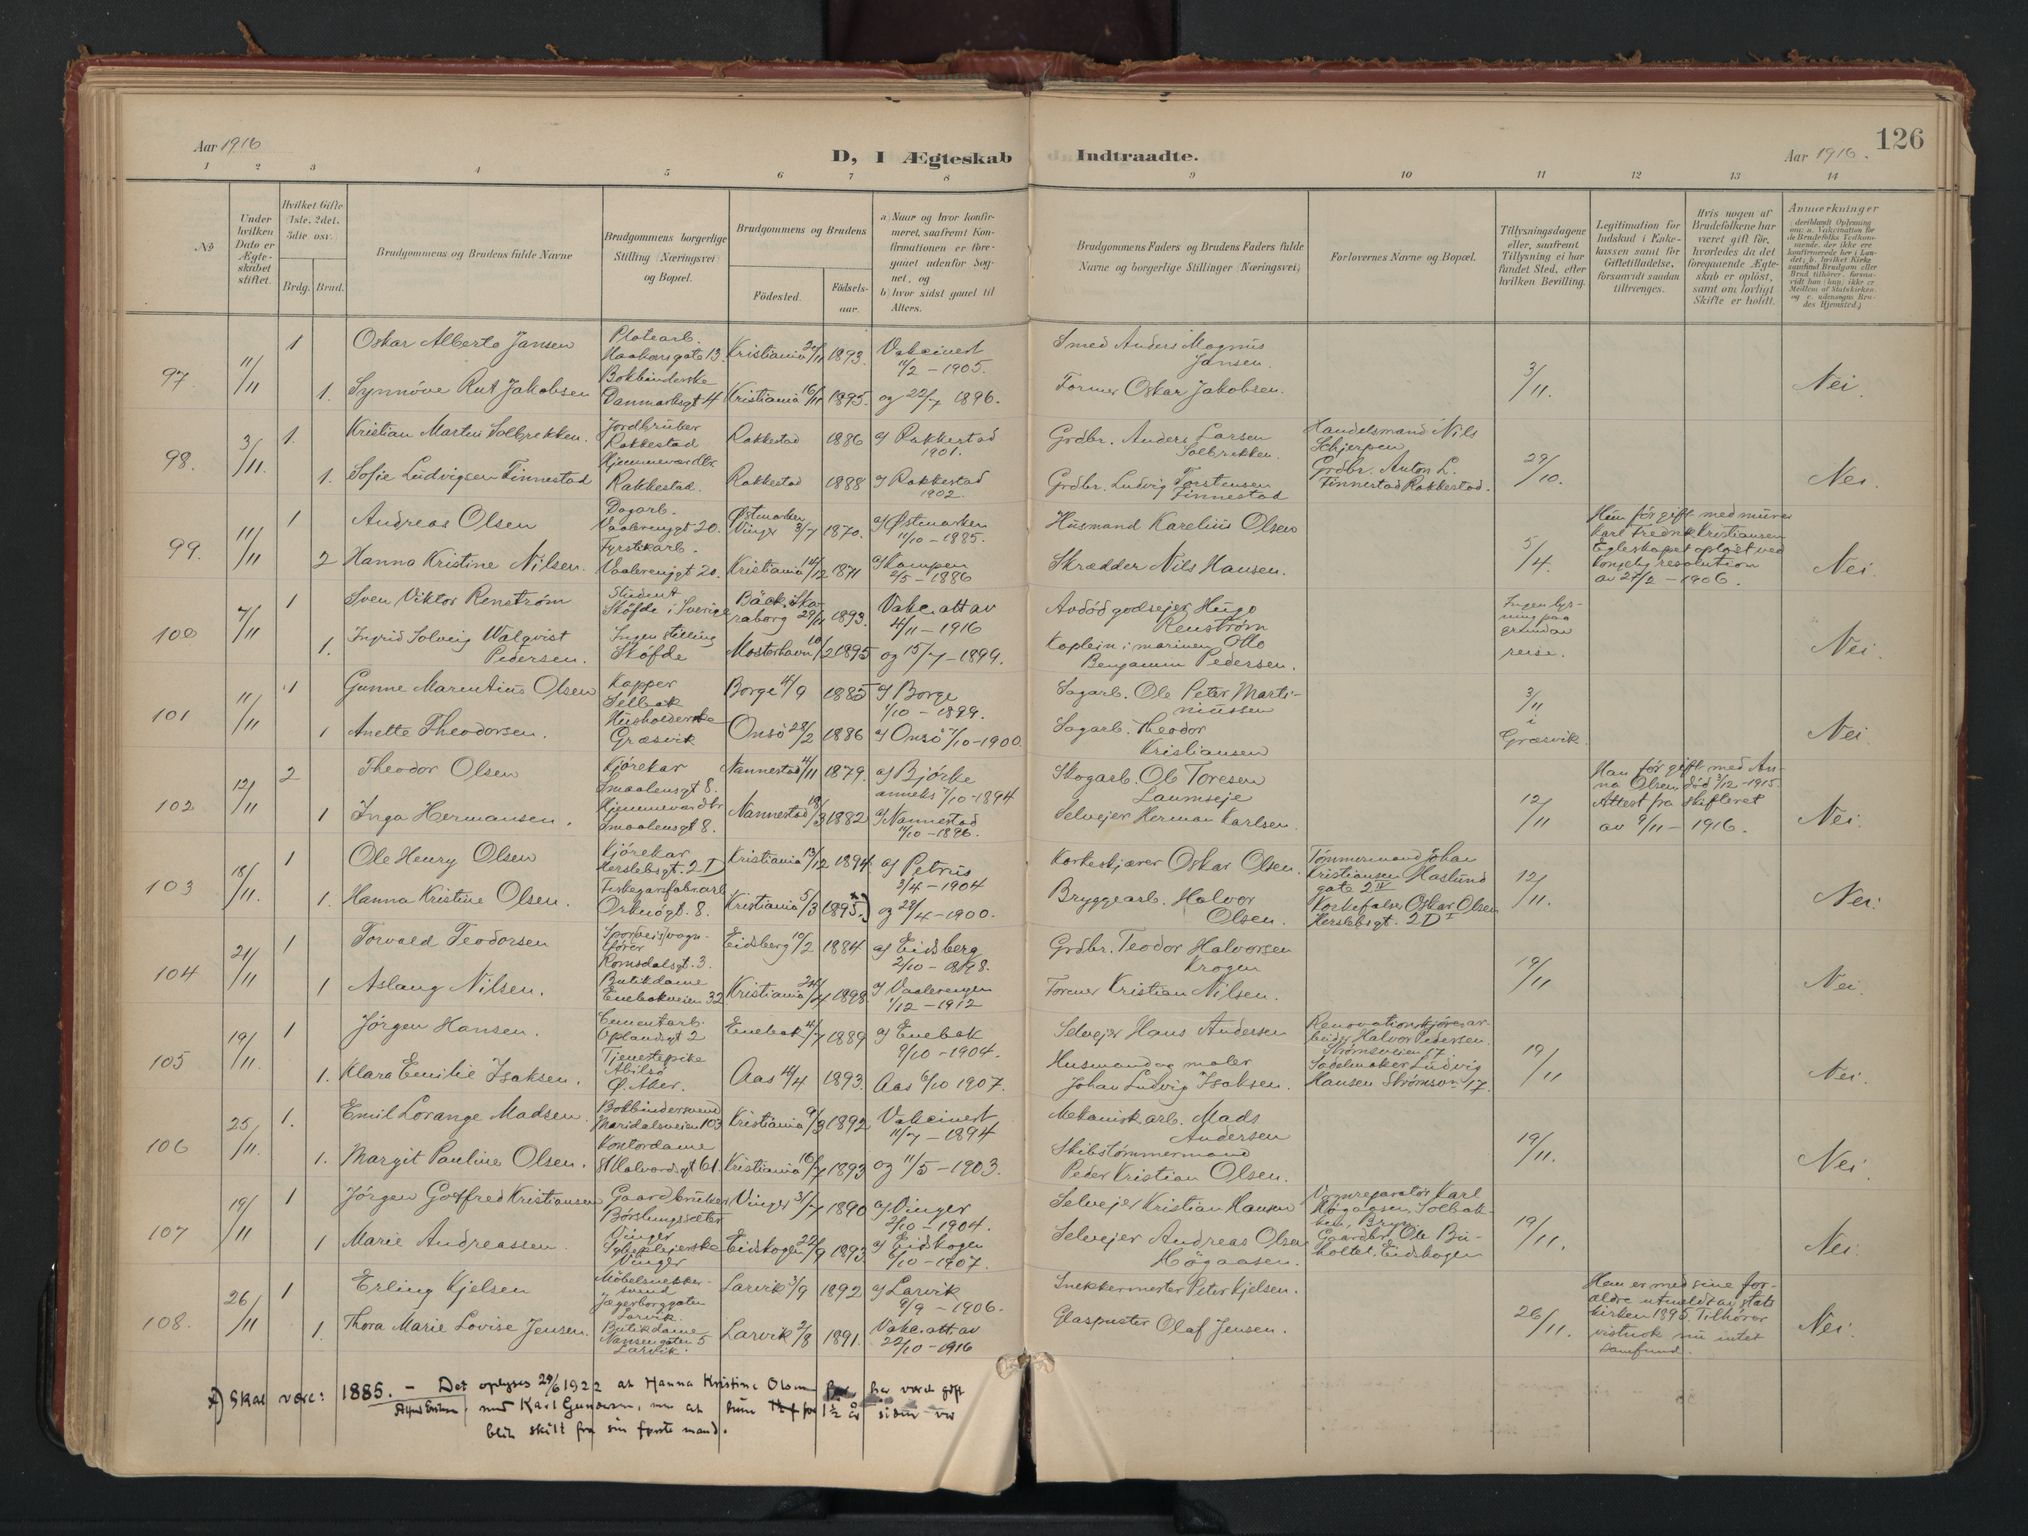 Aar 1916
D, I Ægteskab Indtraadte.
Aar 1916.
126
1 2 3 4 5 6 7 8 9 10 11 12 13 14
№
Under hvilken Dato er Ægteskabet stiftet.
Hvilket Gifte (1ste, 2det, 3die osv.
Brdg. Brud.
Brudgommens og Brudens fulde Navne
Brudgommens borgerlige Stilling (Næringsvei) og Bopæl.
Brudgommens og Brudens
Fødested.
Fødselsaar.
a) Naar og hvor konfirmeret, saafremt Konfirmationen er foregaaet udenfor Sognet, og
b) hvor sidst gaaet til Alters.
Brudgommens Faders og Brudens Faders fulde Navne og borgerlige Stillinger (Næringsvei)
Forlovernes Navne og Bopæl.
Tillysningsdagene eller, saafremt Tillysning ei har fundet Sted, efter hvilken Bevilling.
Legitimation for Indskud i Enkekassen samt for Giftetilladelse, forsaavidt saadan tiltrænges.
Hvis nogen af Brudefolkene har været gift før, hvorledes da det foregaaende Ægteskab er opløst, samt om lovligt Skifte er holdt.
Anmærkninger
(deriblandt Oplysning om: a. Vaccination for de Brudefolks Vedkommende, der ikke ere konfirmerede her i Landet; b. hvilket Kirkesamfund Brudgom eller Brud tilhører, forsaavidt han (hun) ikke er Medlem af Statskirken, og c. udensogns Brudes Hjemsted.)
97. 11/11 1 Oskar Alberto Jansen Platearb. Haakonsgate 13 Kristiania 20/11 1893. Vakcinert 11/2 - 1905. Smed Anders Magnus Jansen. 3/11. Nei.
1. Synnöve Rut Jakobsen Bokbinderske Danmarksgt 4 Kristiania 16/11 1895. og 22/7 1896. Former Oskar Jakobsen.
98. 3/11. 1. Kristian Martin Solbrekken. Jordbruker Rakkestad Rakkestad 1886 af Rakkestad 1901. Grdbr. Anders Larsen Solbrekken. Handelsmand Nils Schjerpen 29/10. Nei.
1. Sofie Ludvigsen Finnestad Hjemmeværdtr. Rakkestad. Rakkestad 1888 af Rakkestad 1902. Grdbr. Ludvig Torstensen Finnestad Grdbr. Anton L. Finnestad Rakkestad.
99. 11/11 1 Andreas Olsen Dagarb. Vaalerenggt 20. Østmarken Vinger 3/7 1870. af Østmarken 11/10 - 1885. Husmand Karelius Olsen 5/4. Hun før gift med murer Karl Fredrik Kristiansen Egteskapet opløst ved kongelig resolution av 27/2 - 1906. Nei
2 Hanna Kristine Nilsen. Fyrstikarb. Vaalerenggt 20. Kristiania 14/12 1871 af Kampen 2/5 - 1886 Skrædder Nils Hansen.
100 7/11 1 Sven Viktor Renström Student Sköfde i Sverige Bäck, Skaraborg 29/11 1893. Vakc. att av 4/11 - 1916 Avdöd godsejer Hugo Renström Ingen lysning paa grund av reise. Nei.
1. Ingrid Solveig Walqvist Pedersen. Ingen stilling Sköfde Mosterhavn 10/2 1895 og 15/7 - 1899. Kaptein i marinen Otto Benjamin Pedersen.
101 11/11 1 Gunne Marentius Olsen Kapper Selbak Borge 4/9 1885 af Borge 1/10 - 1899. Sagarb. Ole Peter Martiniussen 3/11 i Græsvik. Nei.
1 Anette Theodorsen. Husholderske Græsvik Onsö 28/2 1886 af Onsö 7/10 - 1900. Sagarb. Theodor Kristiansen
102 12/11 2 Theodor Olsen Kjörekar Smaalensgt 8. Nannestad 4/11 1879. af Björke anneks 7/10 - 1894 Skogarb. Ole Toresen Laumseje 12/11 Han før gift med Anna Olsen, död 3/12 - 1915. Attest fra skifteret av 9/11 - 1916. Nei.
1 Inga Hermansen. Hjemmeværdtr Smaalensgt 8. Nannestad 18/3 1882 af Nannestad 11/10 - 1896. Selvejer Herman Karlsen.
103 18/11. 1 Ole Henry Olsen Kjörekar Herslebsgt. 2 I Kristiania 13/12 1894 af Petrus 3/4 - 1904 Korkeskjærer Oskar Olsen. Tömmermand Johan Kristiansen Haslund gate 2 IV 12/11. Nei.
1. Hanna Kristine Olsen. Orknögt. 8. Kristiania 5/3 1895 *) og 28/4 - 1900. Bryggearb. Halvor Olsen. Oskar Olsen Herslebsgt. 2D I
104 21/11 1 Torvald Teodorsen Sporveisvognförer Romsdalsgt. 3. Eidsberg 10/2 1884 af Eidsberg 2/10 - 1898. Grdbr. Teodor Halvorsen Krogen 19/11 Nei.
1 Aslaug Nilsen. Butikdame Enebakveien 32 Kristiania 24/4 1898. af Vaalerengen 1/12 - 1912 Former Kristian Nilsen.
105 19/11. 1 Jörgen Hansen. Cementarb. Oplandsgt 2 Enebak 4/7 1889 af Enebak 9/10 - 1904. Selvejer Hans Andersen Renovationskjörearbeider Halvor Pedersen. Strömsveien 17. 19/11 Nei.
1. Klara Emilie Isaksen. Tjenestepike Abilsö Ö. Aker. Aas 14/4 1893. Aas 6/10 1907. Husmand og maler Johan Ludvig Isaksen. Sadelmaker Ludvig Hansen Strömsvn 17.
106 25/11. 1. Emil Lorange Madsen. Bokbindersvend Maridalsveien 103 Kristiania 9/3 1892 Vakcinert 11/7 - 1894 Mekanisk arb. Mads Andersen 19/11. Nei.
1. Margit Pauline Olsen. Kontordame St Halvordsgt 61. Kristiania 16/7 1893 og 11/5 - 1903. Skibstömmermand Peder Kristian Olsen.
107 19/11 1 Jörgen Gotfred Kristiansen Gaardbruker Börslungssæter Vinger Vinger 31/7 1890 af Vinger 2/10 - 1904. Selvejer Kristian Hansen Karl Högaasen, Solbakken, Bryn. 19/11. Nei.
1 Marie Andreassen Sykeplejerske Vinger Eidskogen 22/9 1893 af Eidskogen 6/10 - 1907. Selvejer Andreas Olsen Högaasen. Gaardbr. Ole Buholtet, Eidskogen
108. 26/11 1 Erling Kjelsen Möbelsnekkersvend Jægerborggaten Larvik. Larvik 3/9 1892 af Larvik 9/9 - 1906. Snekkermester Peter Kjelsen. 26/11. Han er med sine forældre utmeldt av statskirken 1895. Tilhörer vistnok nu intet samfund. Nei.
1. Thora Marie Lovise Jensen. Butikdame Nansengaten 5 Larvik. Larvik 2/8 1891. Vakc. att. av 22/10 - 1916 Glaspuster Olaf Jensen.
*) Skal være: 1885. - Det oplyses 29/6 1922 at Hanna Kristine Olsen har været gift
med Karl Gundersen, men at hun for 1½ år siden var
blit skilt fra sin første mand.